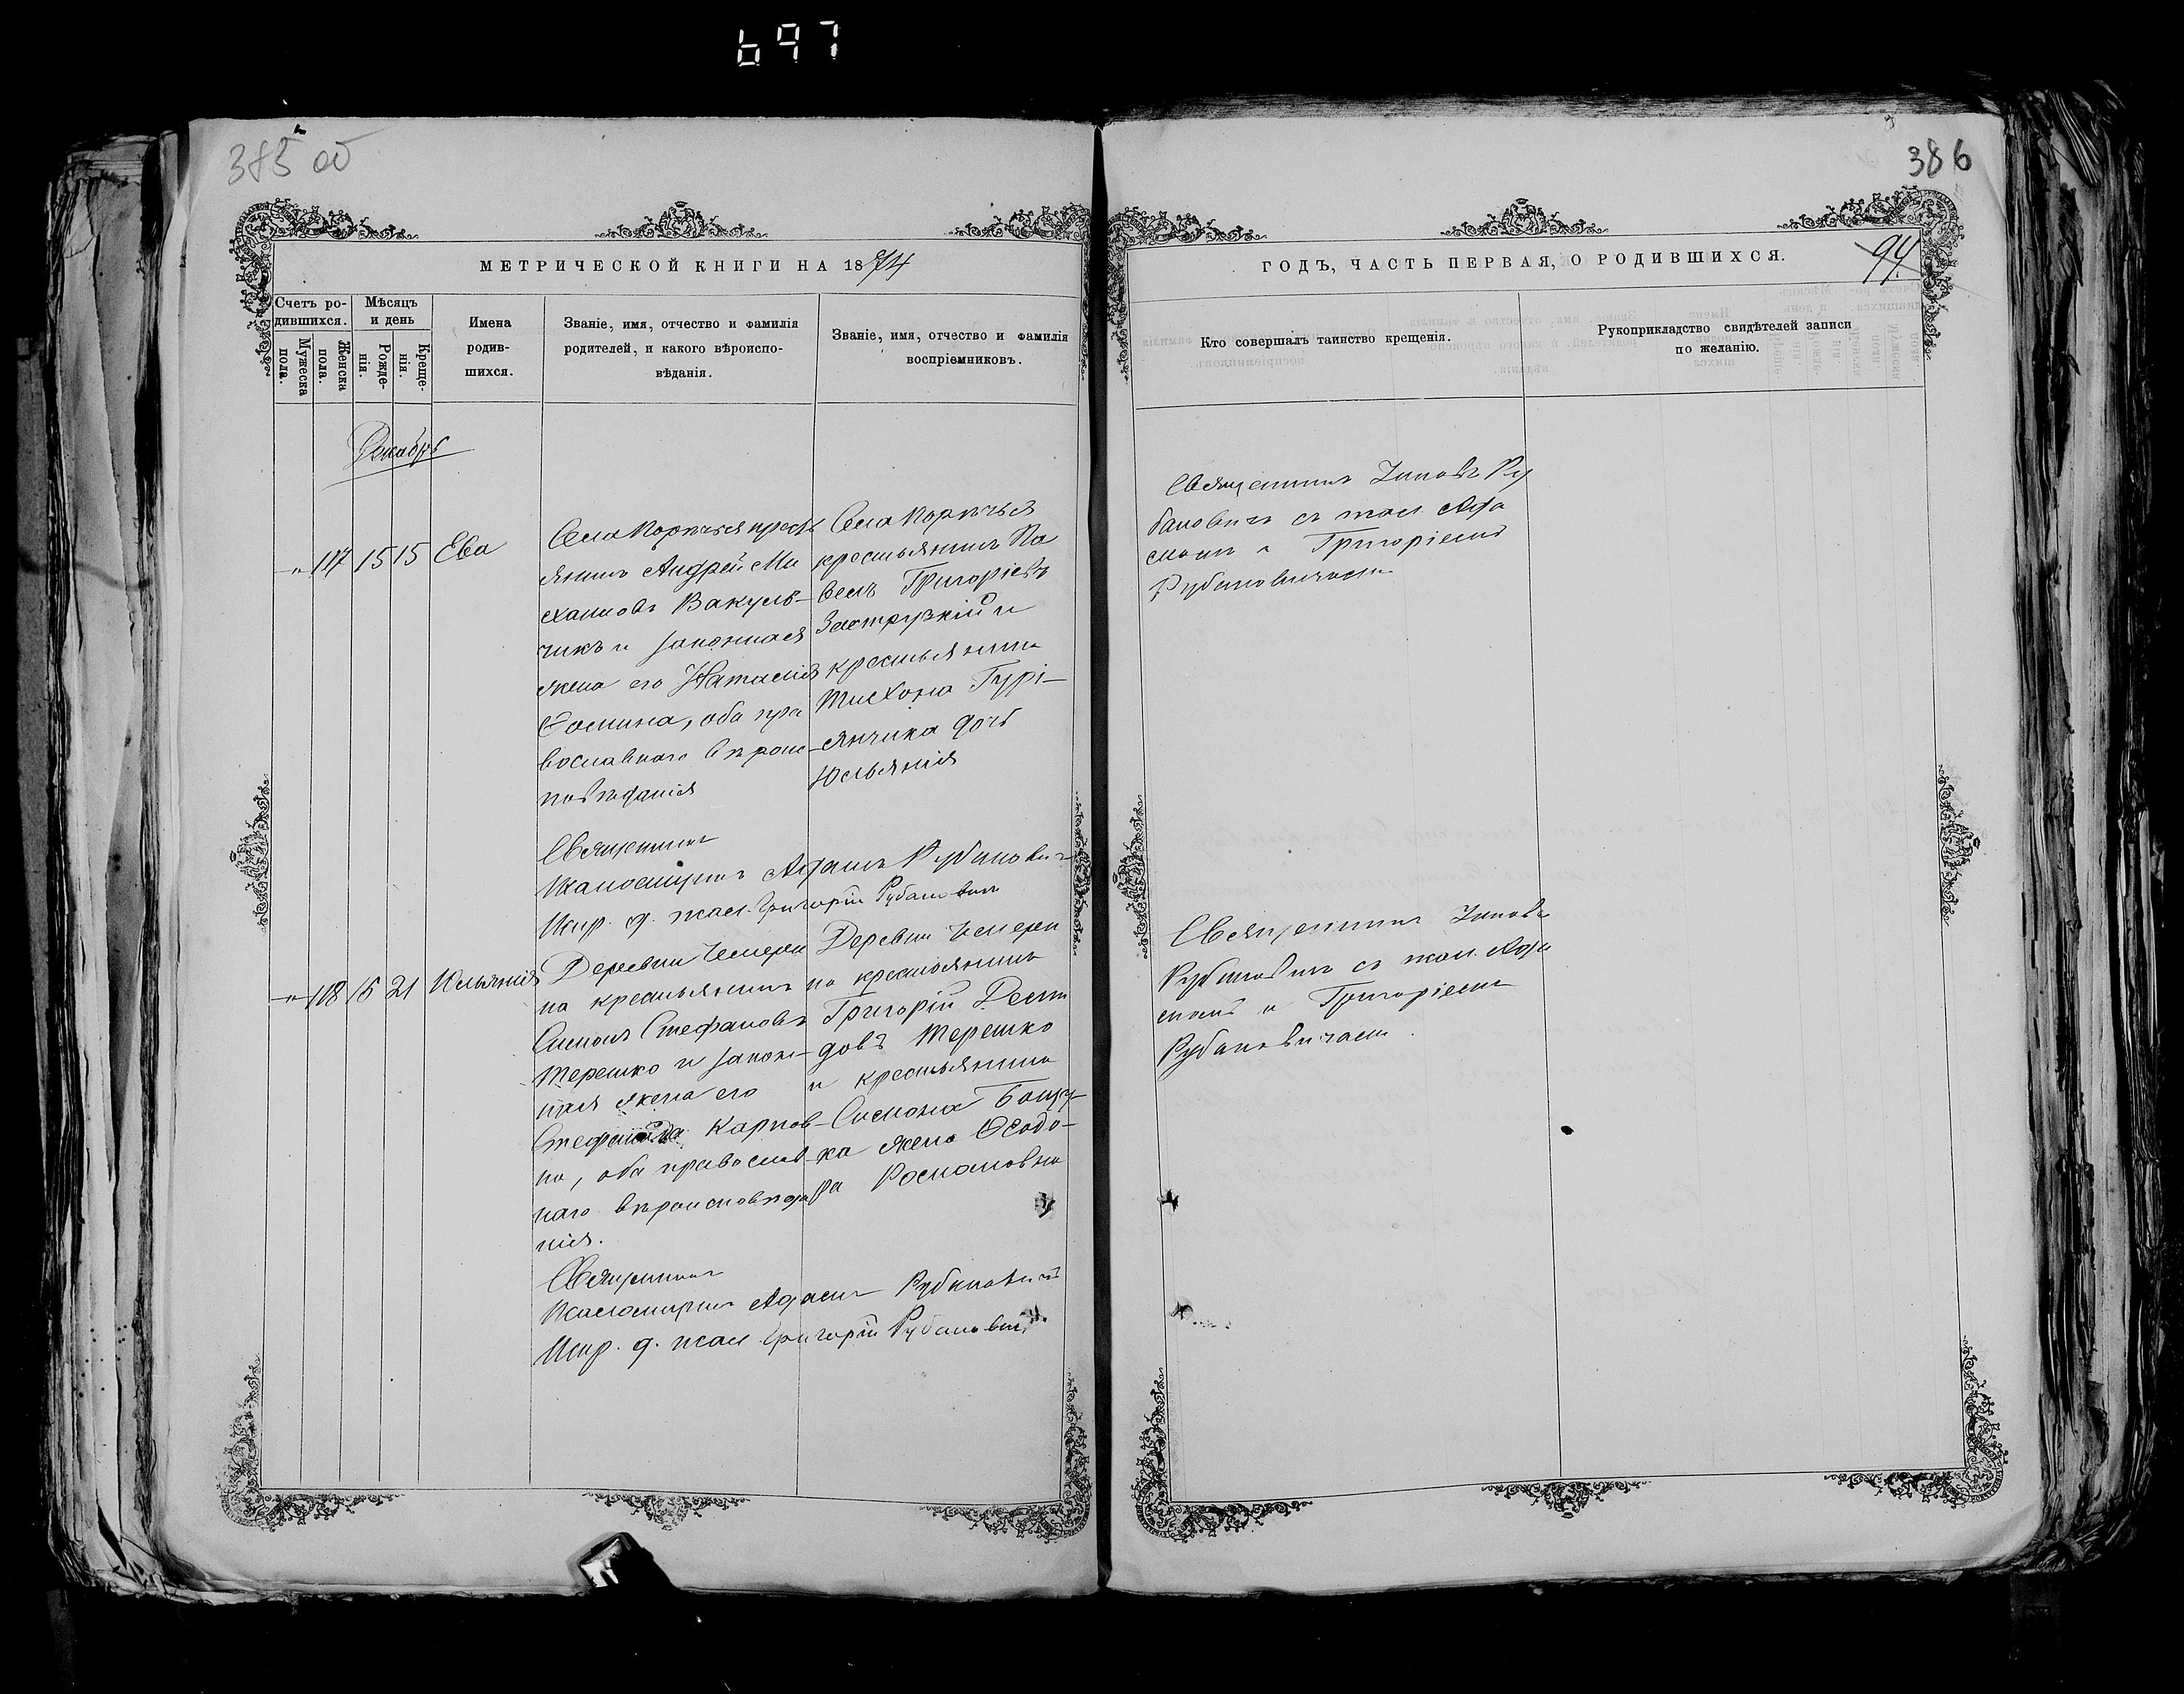 697
385 об
386
МЕТРИЧЕСКОЙ КНИГИ НА 1874
ГОДЪ, ЧАСТЬ ПЕРВАЯ, О РОДИВШИХСЯ.
94
Счетъ ро-
дившихся.
Мужеска
пола.
Женска
пола.
Мѣсяцъ
и день
Рожде-
нія.
Креще-
нія.
Имена
родив-
шихся.
Званіе, имя, отчество и фамилія
родителей, и какого вѣроиспо-
вѣданія.
Званіе, имя, отчество и фамилія
воспріемниковъ.
Кто совершалъ таинство крещенія.
Рукоприкладство свидѣтелей записи
по желанію.
Декабрь
-"- 117 15 15 Ева
Села Порѣчья кресть
янинъ Андрей Ми
хаиловъ Вакуль-
чикъ и законная
жена его Наталія
Ѳомина, оба пра
вославнаго вѣроис-
повѣданія
Села Порѣчья
крестьянинъ Па
велъ Григоріевъ
Заструзкій и
крестьянина
Тихона Гурі-
янчика дочь
Юльянія
Священникъ Іаковъ Ру
бановичъ съ псал. Ада
момъ и Григоріемъ
Рубановичами
Священникъ
Псаломщикъ Адамъ Рубановичъ
Испр. д. псал. Григорій Рубановичъ
-"- 118 15 21 Юльянія
Деревни Чемери
на крестьянинъ
Симонъ Стефановъ
Терешко и закон-
ная жена его
Карпов-
на, оба православ
наго вѣроисповѣда
нія.
Деревни Чемери
на крестьянинъ
Григорій
довъ Терешко
и крестьянина
Симона
ка жена Ѳеодо-
ра Романовна
Священникъ Іаковъ
Рубановичъ съ псал. Ада
момъ и Григоріемъ
Рубановичами.
Священникъ
Псаломщикъ Адамъ Рубановичъ
Испр. д. псал. Григорій Рубановичъ.